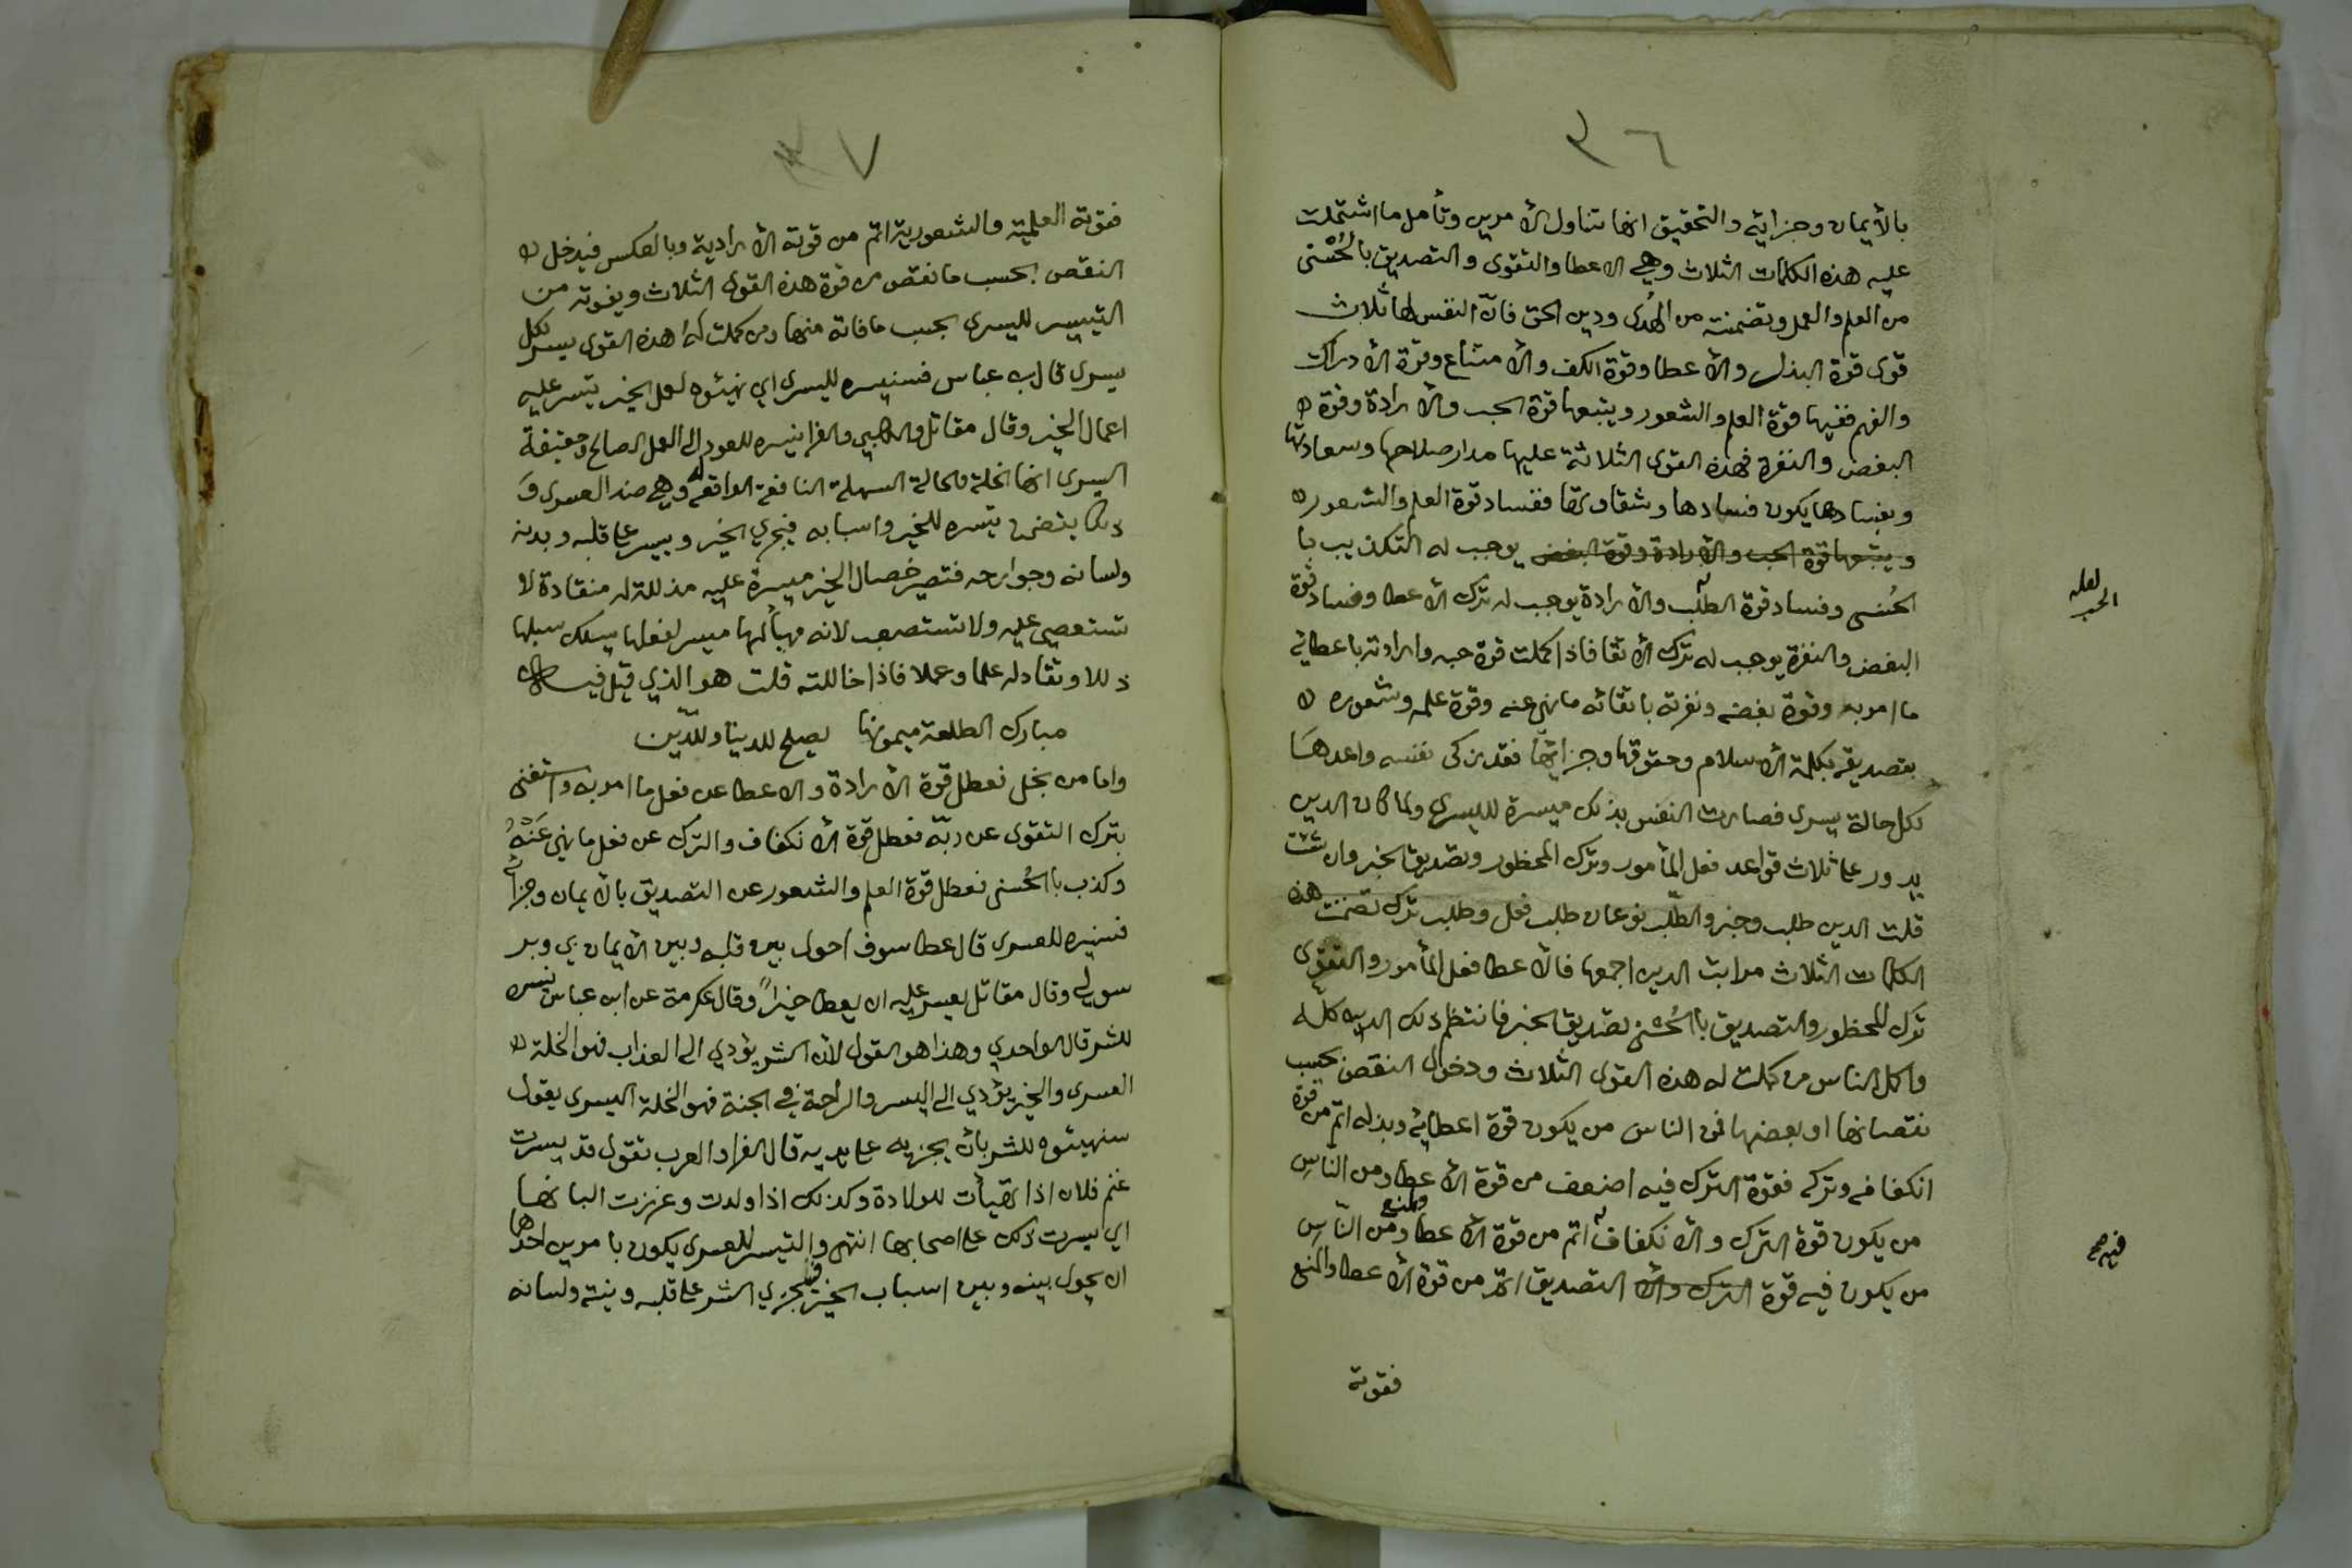 ٣٦
بالأيمان وجزائه والتحقيق انها تتناول الأمرين وتأمل ما اشتملت
عليه هذه الكلمات الثلاث وهي الاعطا والتقوى والتصديق بالحُسْنى
من العلم والعمل وتضمنته من الهُدى ودين الحق فانّ النفس لها ثلاث
قوى قوة البذل والأعطا وقوة الكف والأمتناع وقوة الأدراك
والفهم ففيها قوة العلم والشعور ويتبعها قوة الحب والأرادة وقوة
البغض والنفرة فهذه القوى الثلاثة عليها مدار صلاحها وسعادتها
وبفسادها يكون فسادها وشقاوتها ففساد قوة العلم والشعور
ويتبعها قوة الحب والأرادة وقوة البغض يوجب له التكذيب با
لحُسنى وفساد قوة الطلب والأرادة يوجب له ترك الأعطا وفساد قوة
لعله
الحب
البغض والنفرة يوجب له ترك الأتقا فاذا كملت قوة حبه وارادته باعطائه
ما امر به وقوة بغضه ونفرته باتقائه ما نهي عنه وقوة علمه وشعوره
بتصديقه بكلمة الأسلام وحقوقها وجزائها فقد زكى نفسه واعدهَا
لكل حالة يسرى فصارت النفس بذلك ميسرة لليسرى ولما كان الدين
يدور على ثلاث قواعد فعل المأمور وترك المحظور وتصديق الخبر وان شئت
قلت الدين طلب وخبر والطلب نوعان طلب فعل وطلب ترك تضمنت هذه
الكلمات الثلاث مراتب الدين اجمعها فالأعطا فعل المأمور والتقوى
ترك للمحظور والتصديق بالحُسْنى تصديق الخبر فانتظم ذلك الدين كله
واكمل الناس من كملت له هذه القوى الثلاث ودخول النقص بحسب
نقصانها او بعضها فمن الناس من يكون قوة اعطائه وبذله اتم من قوة
انكفافه وتركه فقوة الترك فيه اضعف من قوة الأعطا ومن النّاسِ
من يكون قوة الترك والأنكفاف اتم من قوة الأعطا والمنع ومن النّاسِ
فيه صح
من يكون فيه قوة الترك والأ التصديق اتم من قوة الأعطا والمنع
فقوته
٣٧
فقوته العلمية والشعورية اتم من قوته الأرادية وبالعكس فيدخل
النقص بحسب ما نقص من قوة هذه القوى الثلاث ويفوته من
التيسير لليسرى بحسب ما فاته منها ومن كملت له هذه القوى يسر لكل
يسرى قال بن عباس فسنيسره لليسرى اي نهيئوه لعمل الخير يتيسر عليه
اعمال الخير وقال مقاتل والكلبي والفرا نيسره للعود الى العمل الصالح وحقيقة
اليسرى انها الخلة والحالة السهلة النافعة الواقعه له وهي ضد العسرى وَ
ذلك يتضمن تيسره للخير واسبابه فيجري الخير وييسر على قلبه وبدنه
ولسانه وجوارحه فتصير خصال الخير ميسرة عليه مذللة له منقادة لا
تستعصي عليه ولا تستصعب لانه مهيأ لها ميسر لفعلها يسلك سبلها
ذللا وتقاد له علما وعملا فاذا خاللته قلت هو الذي قيل فيه
مبارك الطلعة ميمونها   يصلح للدينا وللدّين
واما من بخل فعطل قوة الأرادة والاعطا عن فعل ما امر به واستغنى
بترك التقوى عن ربّه فعطل قوة الأنكفاف والترك عن فعل ما نهي عَنْهُ
وكذب بالحُسنى فعطل قوة العلم والشعور عن التصديق بالأيمان وجزائه
فسنيسره للعسرى قال عطا سوف احول بين قلبه وبين الأيمان بي وبر
سولي وقال مقاتل يعسر عليه ان يعطا خيراً وقال عكرمة عن ابن عباس نيسره
للشر قال الواحدي وهذا هو القول لأن الشر يؤدي الى العذاب فهو الخلة
العسرى والخير يؤدي الى اليسر والراحة في الجنة فهو الخلة اليسرى يقول
سنهيئوه للشر بأن يجريه على يديه قال الفرا والعرب تقول قد يسرت
غنم فلان اذا تهيأت للولادة وكذلك اذا ولدت وغزرت البانها
اي يسرت ذلك على اصحابها انتهى والتيسر للعسرى يكون بامرين احدها
ان يحول بينه وبين اسباب الخير فيجري الشر على قلبه ونيته ولسانه